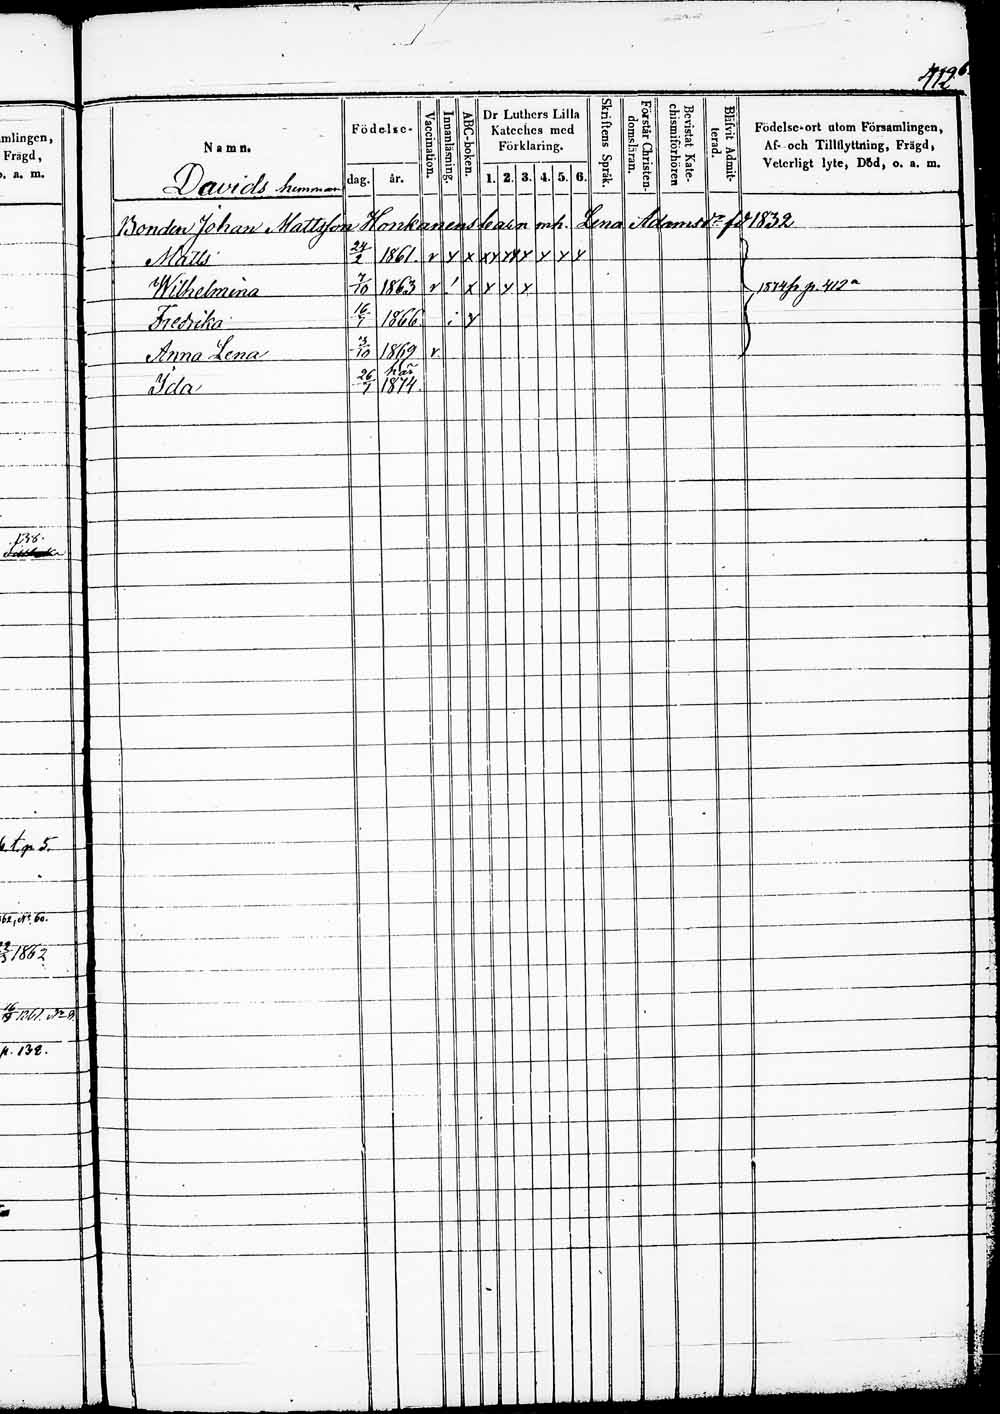 412 b.
Namn.
Davids hemman
Födelse-
dag.
år.
Vaccination.
Innanläsning.
ABC-boken.
Dr Luthers Lilla
Kateches med
Förklaring.
1. 2. 3. 4. 5. 6.
Skriftens Språk.
Förstår Christen-
domsläran.
Bevistat Kate-
chismiförhören
Blifvit Admit-
terad.
Födelse-ort utom Församlingen,
Af- och Tillflyttning, Frägd,
Veterligt lyte, Död, o. a. m.
Bonden Johan Mattsson Honkanens barn mh. Lena Adamsdr fd 1832
Matts 24/2 1861. v x x xx xxx x x x x
Wilhelmina 7/10 1863 v ! x x x x 1874 fr p. 412a
Fredrika 16/7 1866. i x
Anna Lena 3/10 1869 v
här
Ida 26/7 1874.
amlingen,
Frägd,
o. a. m.
p 38.
b. t. p 5.
1862, No 60.
1862
1861. No 9.
p. 132.